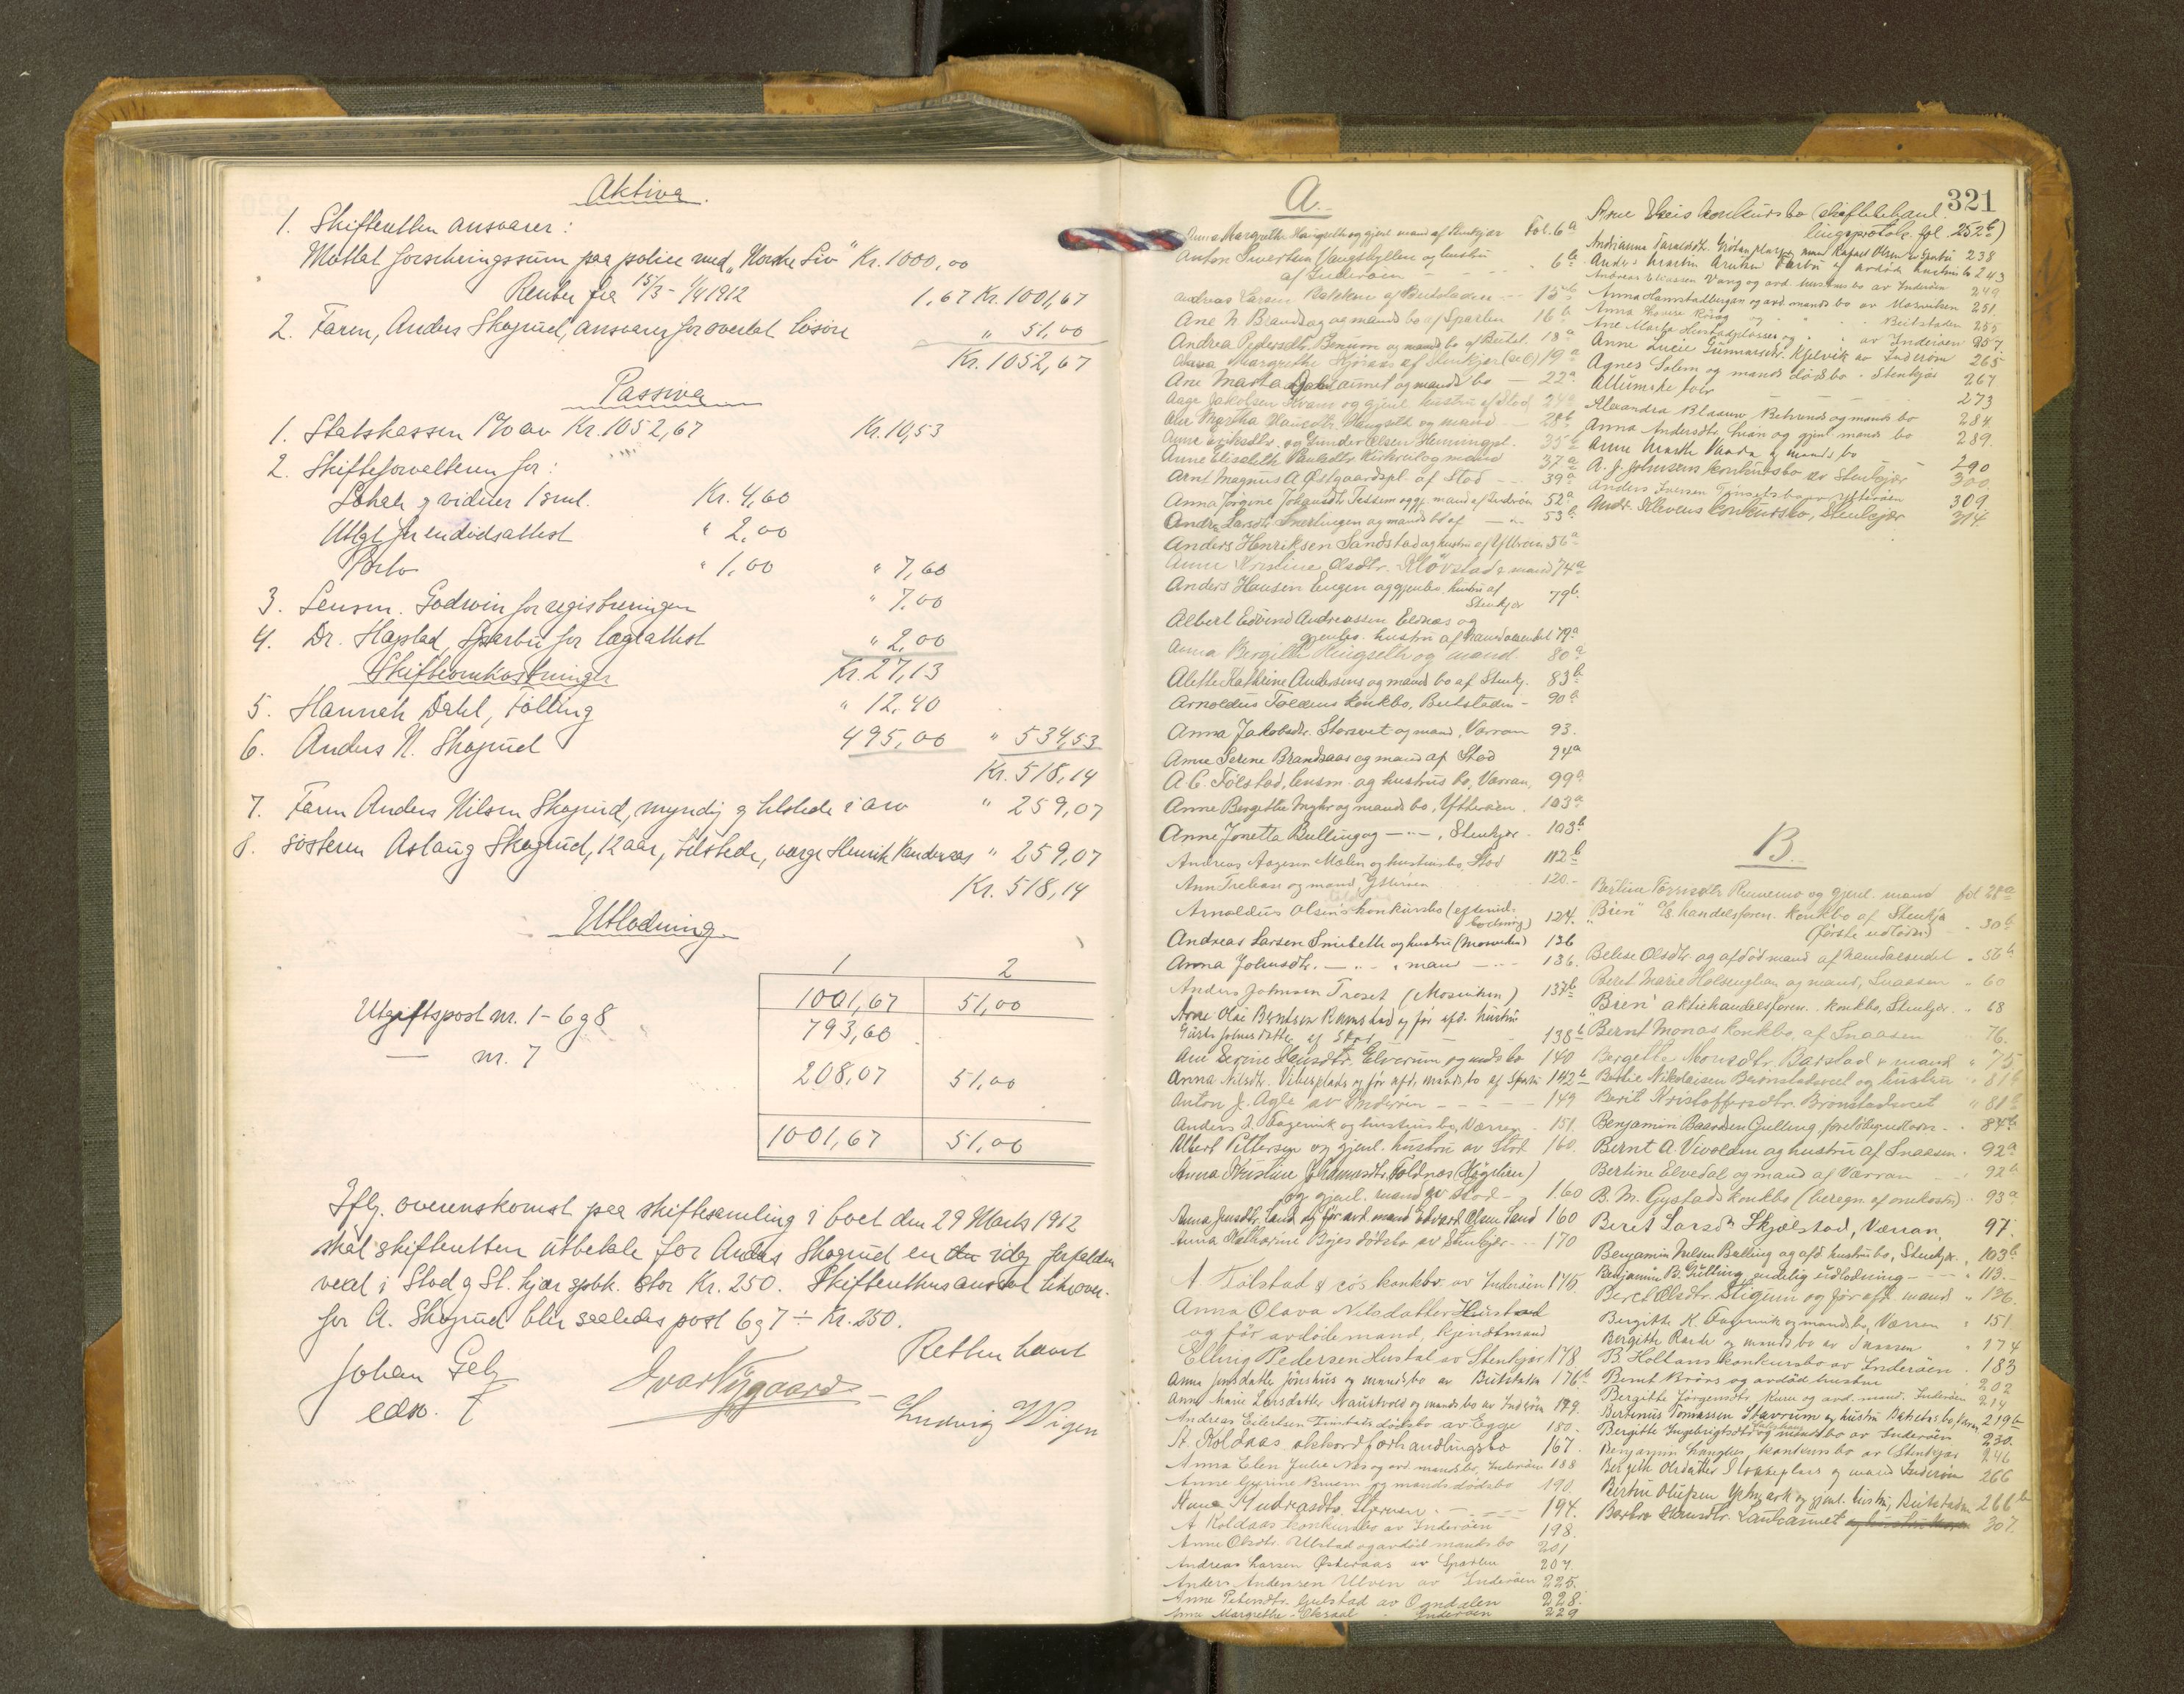 Aktiva.
1. Skifteretten ansvarer:
Mottat forsikringssum paa police med "Norske Liv" Kr. 1000,00
Renter fra 15/3 - 1/4 1912 1,67 Kr. 1001,67
2. Faren, Anders Skogrud, ansvarer for overtat løsøre " 51,00
Kr. 1052,67
Passiva
1. Statskassen 1% av Kr. 1052,67 Kr. 10,53
2. Skifteforvalteren for:
Lokale g vidner 1 saml. Kr. 4,60
Utlgt for en dødsattest " 2,00
Porto " 1,00 " 7,60
3. Lensm. Godwin for registreringen " 7,00
4. Dr. Hapstad, Sparbu for lægeattest " 2,00
Skifteomkostninger Kr. 27,13
5. Hannah Dahl, Følling " 12,40
6. Anders N. Skogrud 495,00 " 534,53
Kr. 518,14
7. Faren Anders Nilsen Skogrud, myndig g tilstede i arv " 259,07
8. søsteren Aslaug Skogrud, 12 aar, tilstede, værge Henrik " 259,07
Kr. 518,14
Utlodning
1 2
1001,67 51,00
Utgiftspost nr. 1-6 g 8 793,60
— nr. 7 208,07 51,00
1001,67 51,00
Iflg. overenskomst paa skiftesamling i boet den 29 Marts 1912
skal skifteretten utbetale for Anders Skogrud en idag forfalden
vexel i Stod g St. kjær spbk. stor Kr. 250. Skifterettens ansvar likeover-
for A. Skogrud blir saaledes post 6 g 7 ÷ Kr. 250.
Retten hævet
Johan Gelz
edsv. f
Ivar Nygaard
Ludvig Wigen
321
A.
Anna Margrethe og gjenl. mand af Stenkjær Fol. 6a
Anton Sivertsen Vangshyllen og hustru
af Inderøen - - - " 6b
Andreas Larsen Bakken af Beitstaden - 15b
Ane N. Brandsag og mands bo af Sparbu 16b
Andrea Pedersdtr. og mands bo af Beitst. 18a
Margrethe af Stenkjær 19a
Ane Marta og mands bo - 22a
Aage Jakobsen Kvam og gjenl. hustru af Stod 24a
og mand - 28b
Anne Eriksdtr. og Gunder Olsen Hemmingpl. 35b
Anne Elisabeth og mand 37a
Arnt Magnus A. Østgaardspl. af Stod - 39a
Anna Jørgine Johansdtr. Tessem og gj. mand af Inderøen 52a
Andrea Larsdtr. Snerlingen og mands bo af - 53b
Anders Henriksen Sandstad og hustru af Ytterøen 56a
Anne Kristine Olsdtr. Kløvstad & mand 74a
Anders Hansen Eugen og gjenlev. hustru af
Stenkjær 79b
Albert Edvind Andreassen Eldnæs og
gjenlev. hustru af Namdalseidet 79a
Anna Bergitte Ringseth og mand. 80a
Alette Kathrine Andersens og mands bo af Stenkj. 83b
Arnoldus Foldens konkbo, Beitstaden - 90b
Anna Jakobsdtr. Storsvet og mand, Værran 93.
Anne Serine Brandsaas og mand af Stod 94a
A. C. Følstad, lensm. og hustrus bo, Værran, 99a
Anne Bergitte Myhr og mands bo, Ytterøen. 103a
Anne Jonetta Bulling og - " - , Stenkjær - 103b
Andreas Aagesen Mælen og hustrus bo, Stod 112b
Ann og mand Ytterøen 120.-
Arnoldus Olsen's konkursbo 124.
Andreas Larsen og hustru (Mosviken) 136
Anna Johnsdtr. - " - mand - " - 136.
Anders Johnsen Troset (Mosviken) 137b
Arne Olai Berntsen Ramstad og før afd. hustru
af Stod 138b
Ane Serine Hansdtr. Elverum og mands bo 140
Anna Nilsdtr. Vibesplads og før afd. mands bo af Sparbu 142b
Anton J. Agle av Inderøen - - - 149
Anders I. Fagervik og hustrus bo, Værren - 151.
Albert Pettersen og gjenl. hustru av Stod 160.
Anna Kristine Johannesdtr. Foldnæs
og gjenl. mand av Stod - 160
Anna Jensdtr. Sand og før avd. mand Edvard Olsen Sand 160
Anna Katharine Bojes dødsbo av Stenkjær - 170
A. Følstad & co's konkbo av Inderøen 175
Anna Olava Nilsdatter Hustad
og før avdøde mand, kjendtmand
Elling Pedersen Hustad av Stenkjær 178
Anna Jonsdatter og mands bo av Beitstaden 176b
Anne Marie Larsdatter Naustvold og mands bo av Inderøen 179.
Andreas Eilertsen dødsbo av Egge 180.
A. Koldaas akkordforhandlingsbo 167.
Anna Elen Julia Næs og avd. mands bo, Inderøen 188
Anne Gjerine Bruem og mands dødsbo 190.
Anna - 194.
A. Koldaas konkursbo av Inderøen 198.
Anne Olsdtr. Ulstad og avdød mands bo 201
Andreas Larsen Østeraas av Sparbu 207
Anders Andersen Ulven av Inderøen 225.
Anne Petersdtr. Gulstad av Ogndalen 228.
Anne Margrethe av Inderøen 229
Arne Eheis konkursbo (skiftebehand-
lingsprotok. fol. 252b)
Andrianna 238
Anders Martin hustrus bo 243
Andreas Eliassen Vang og avd. hustrus bo av Inderøen 249
Anna Hamstadbergan og avd. mands bo av Mosviken 251.
Anna Rösag og " " " Beitstaden 255
Ane Marta Hustadplassen og " " av Inderøen 257.
Anne Lucie Gunnarsdtr. Kjelvik av Inderøen 265
Agnes Solem og mands dødsbo " Stenkjær 267
273
Alexandra Blaauw Behrends og mands bo 284.
Anna Andersdtr. Lian og gjenl. mands bo 289.
Anne Marth Vaada og mands bo - 290
A. J. Johnsens konkursbo av Stenkjær 300.
Anders Iversen av Ytterøen 309.
Andr. Klevens konkursbo, Stenkjær 314.
B.
Bertina og gjenl. mand fol 28a
"Bien" A/S handelsforen. konkbo af Stenkjær
(første udlodn.) " 30b
Belese Olsdtr. og afdød mand af Namdalseidet " 56b
Beret Marie og mand, Snaasen " 60
"Bien" aktiehandelsforen. konkbo, Stenkjær. " 68
Bernt Monas konkbo, af Snaasen " 76.
Bergette Monsdtr. Barstad & mand " 75
Bertie Nikolaisen og hustru " 81b
Berit Kristoffersdtr. Bronstadsvet " 81b
Benjamin Baardsen Gulling, foreløbig udlodn. " 84b
Bernt A. Vivolden og hustru af Snaasen " 92a
Bertine Elvedal og mand af Værran - " 92b
B. M. Gystads konkbo (beregn. af omkostn.) " 93a
Berit Larsdtr Skjølstad, Værran, 97.
Benjamin Nilsen Bulling og afd. hustrus bo, Stenkjær. " 103b
Benjamin B. Gulling, endelig udlodning - " 113.
Beret Olsdtr. Stigum og før afd. mand " 136.
Bergitte K. Fagervik og mands bo, Værren " 151
Bergitte og mands bo av Snaasen " 174
B. Hollans konkursbo av Inderøen " 183
Bernt og avdød hustru " 202
Bergitte Jørgensdtr. og avd. mand. Inderøen 214
Bertinus Tomassen Stavrum og hustru 219b
Bergitte Ingebrigtsdtr og mands bo av Inderøen 230.
Benjamin konkursbo av Stenkjær 246
Bergitte Olsdatter og mand Inderøen 266
og gjenl. hustru, Beitstaden 266b
Barbro Hansdtr. 307.